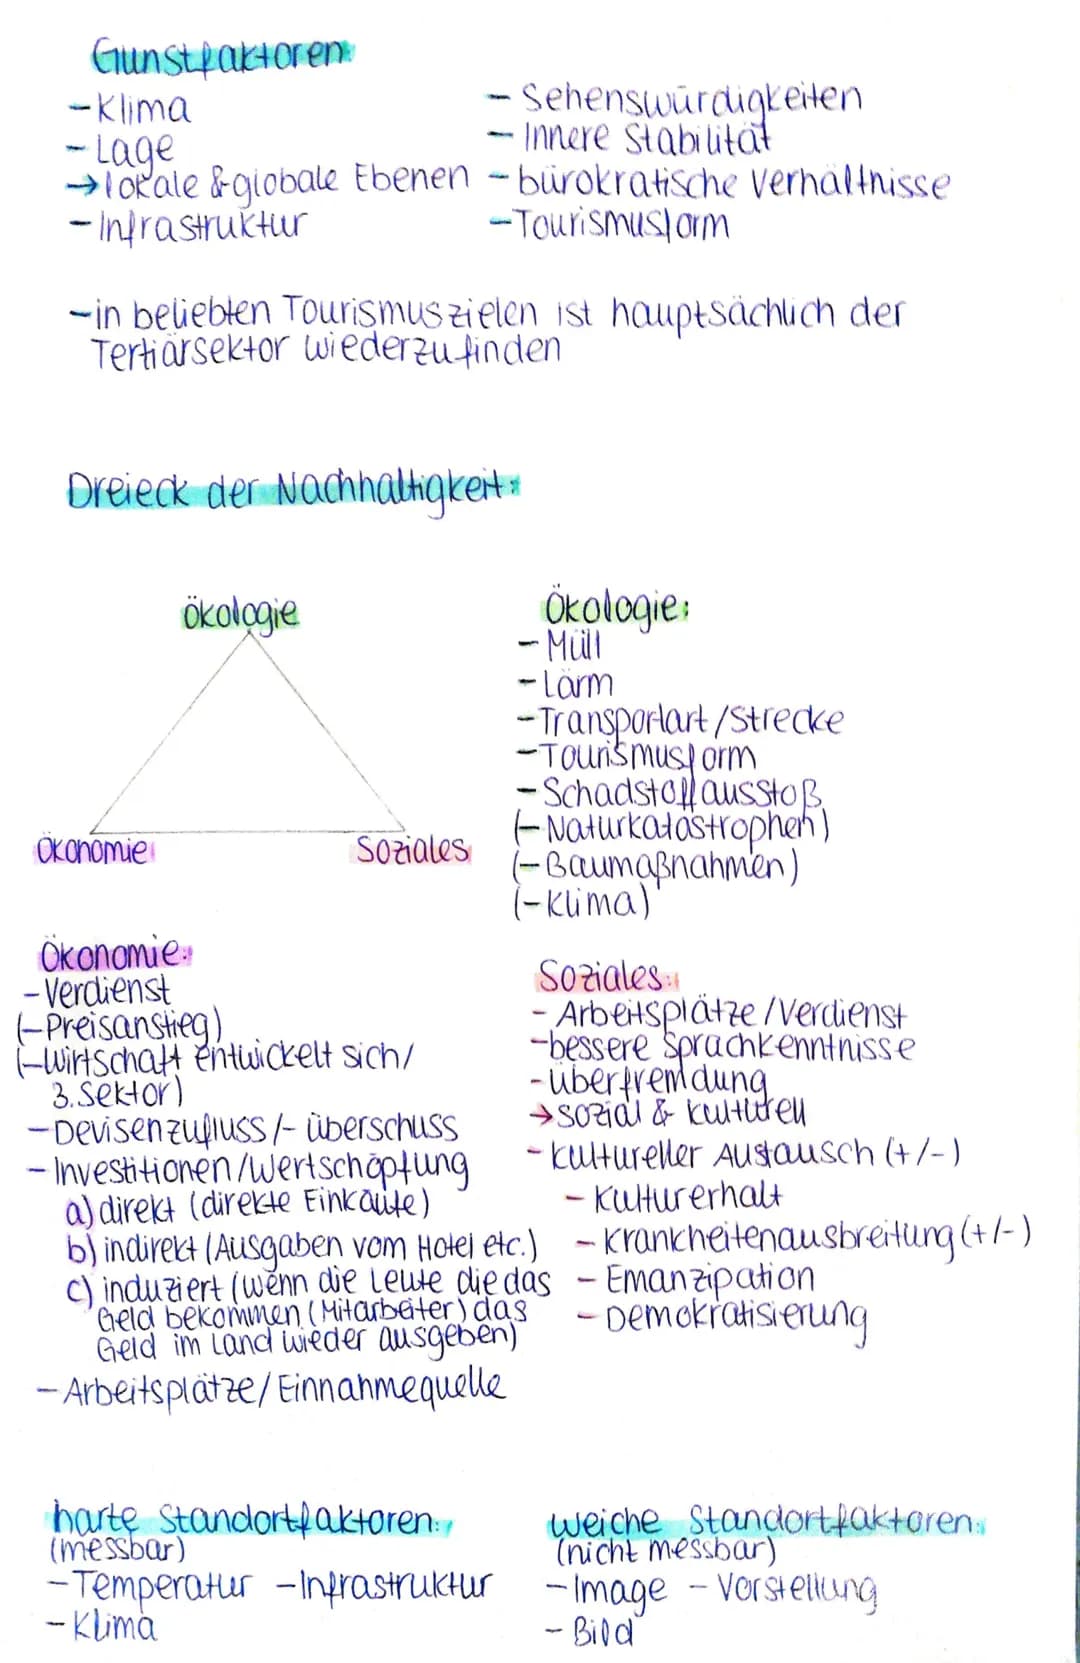 Gunstfaktoren:
- Klima
- Lage
→ lokale & globale Ebenen
- Infrastruktur
- Sehenswürdigkeiten
- Innere Stabilität
- bürokratische Verhältnisse
- Tourismusform
- in beliebten Tourismuszielen ist hauptsächlich der
Tertiärsektor wiederzufinden
Dreieck der Nachhaltigkeit:
Ökologie
Ökonomie
Soziales
Ökologie:
- Müll
- Lärm
- Transportart/Strecke
- Tourismusform
- Schadstoffausstoß
(- Naturkatastrophen)
(- Baumaßnahmen)
(- Klima)
Ökonomie:
- Verdienst
(- Preisanstieg)
(- Wirtschaft entwickelt sich/
3. Sektor)
- Devisenzufluss/- überschuss
- Investitionen/Wertschöpfung
a) direkt (direkte Einkäufe)
b) indirekt (Ausgaben vom Hotel etc.)
c) induziert (wenn die Leute die das
Geld bekommen (Mitarbeiter) das
Geld im Land wieder ausgeben)
- Arbeitsplätze/Einnahmequelle
Soziales:
- Arbeitsplätze/Verdienst
- bessere Sprachkenntnisse
- Überfremdung
→ sozial & kulturell
- kultureller Austausch (+/-)
- Kulturerhalt
- Krankheitenausbreitung (+/-)
- Emanzipation
- Demokratisierung
harte Standortfaktoren:
(messbar)
- Temperatur - Infrastruktur
- Klima
weiche Standortfaktoren:
(nicht messbar)
- Image - Vorstellung
- Bild